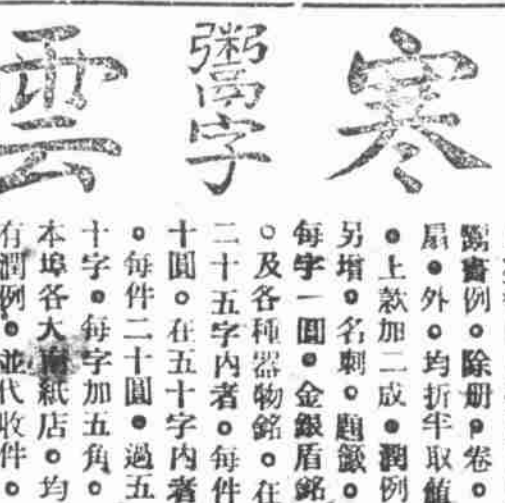 寒
鬻字
雲
鬻書例。除册。卷。
扇。外。均折半取
。上款加二成。潤例
另增。名刺。題籤。
每字一圓。金銀盾銘
。及各種器物銘。在
二十五字內者。每件
十圓。在五十字內者
。每件二十圓。過五
十字。每字加五角。
本埠各大紙店。均
有潤例。並代收件。